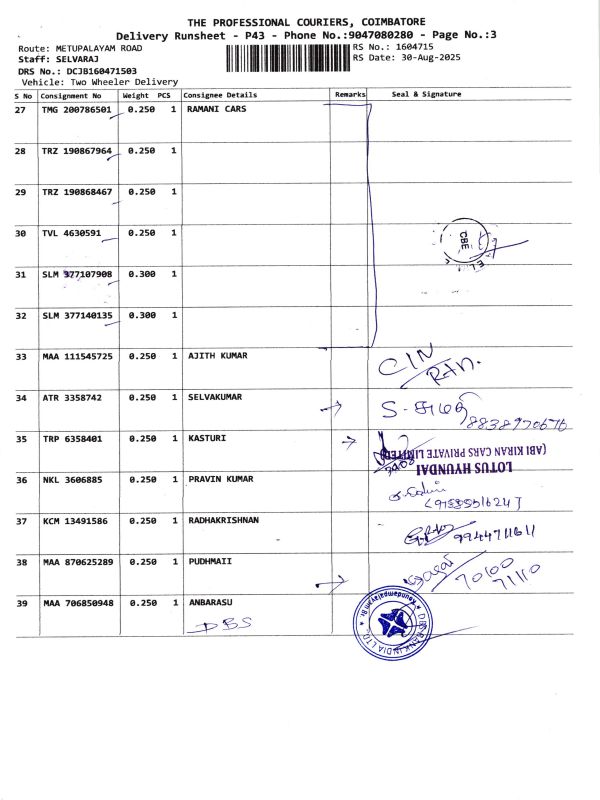 THE PROFESSIONAL COURIERS, COIMBATORE
Delivery Runsheet - P43 - Phone No.:9047080280 - Page No.:3
Route: METUPALAYAM ROAD RS No.: 1604715
Staff: SELVARAJ RS Date: 30-Aug-2025
DRS No.: DCJB160471503
Vehicle: Two Wheeler Delivery
S No Consignment No Weight PCS Consignee Details Remarks Seal & Signature
27 TMG 200786501 0.250 1 RAMANI CARS
28 TRZ 190867964 0.250 1
29 TRZ 190868467 0.250 1
30 TVL 4630591 0.250 1
CBE
31 SLM 377107908 0.300 1
32 SLM 377140135 0.300 1
33 MAA 111545725 0.250 1 AJITH KUMAR
34 ATR 3358742 0.250 1 SELVAKUMAR
35 TRP 6358401 0.250 1 KASTURI
LOTUS HYUNDAI
(ABI KIRAN CARS PRIVATE LIMITED)
36 NKL 3606885 0.250 1 PRAVIN KUMAR
37 KCM 13491586 0.250 1 RADHAKRISHNAN
9944711611
38 MAA 870625289 0.250 1 PUDHMAII
70100
71110
39 MAA 706850948 0.250 1 ANBARASU
DBS
DBS BANK INDIA LTD